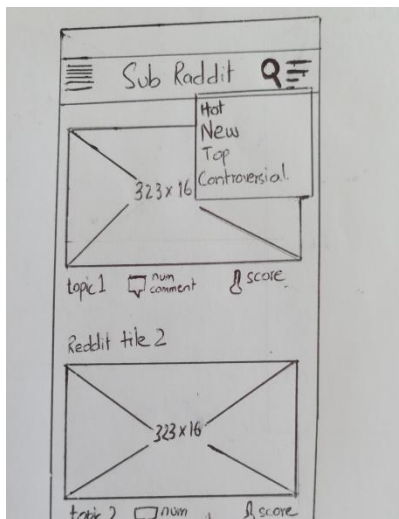 Sub Raddit
Hot
New
Top
Controversial
323 x 16
topic 1 num comment score
Reddit title 2
323 x 16
topic 2 num score